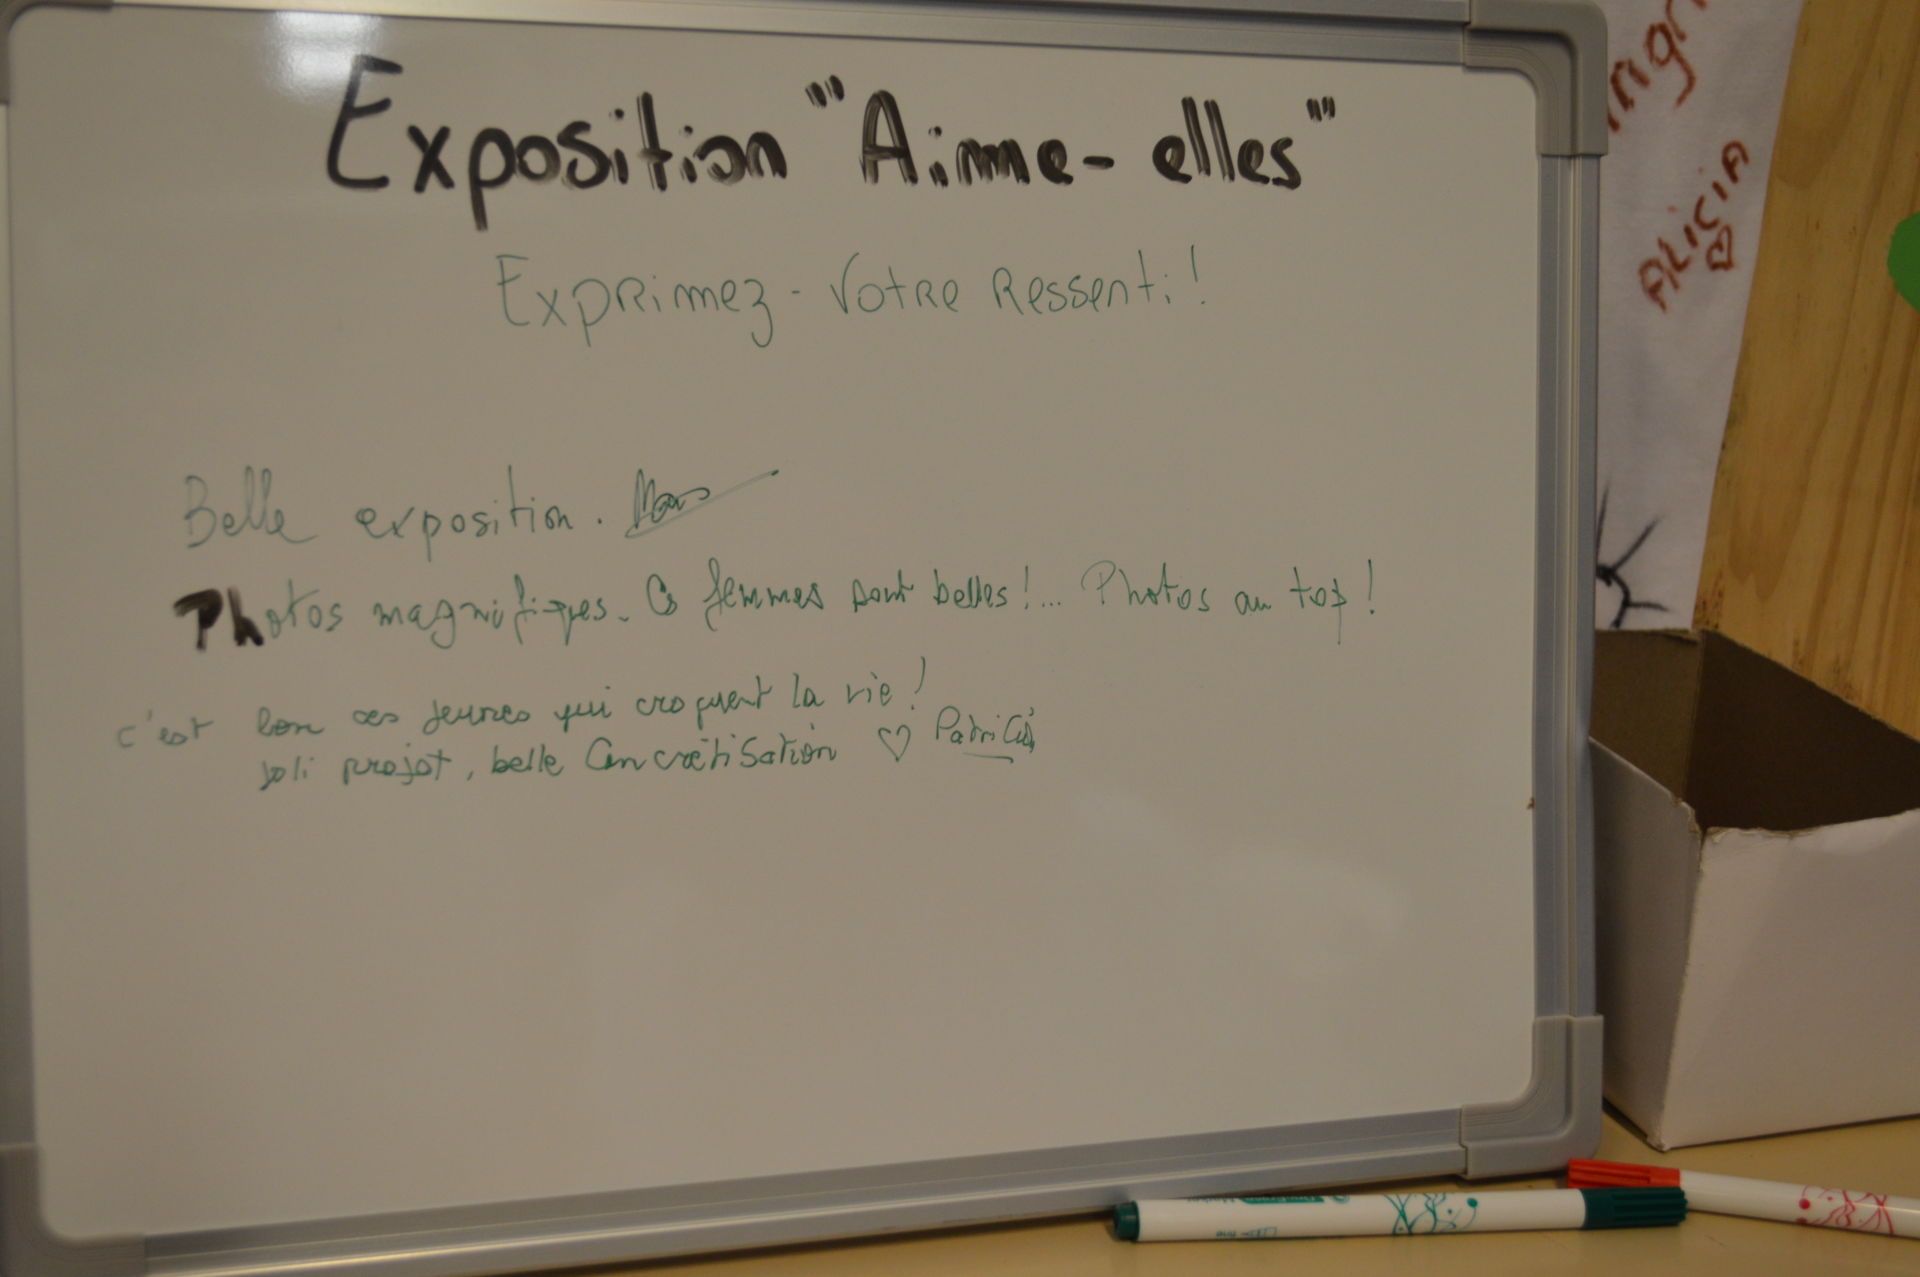 Exposition "Aime-elles"
Exprimez-Votre Ressenti!
Belle exposition.
Photos magnifiques. Ces femmes sont belles!... Photos au top!
c'est bon ces jeunes qui croquent la vie!
Joli projet, belle Concrétisation ♡ Patricia
ALiCiA